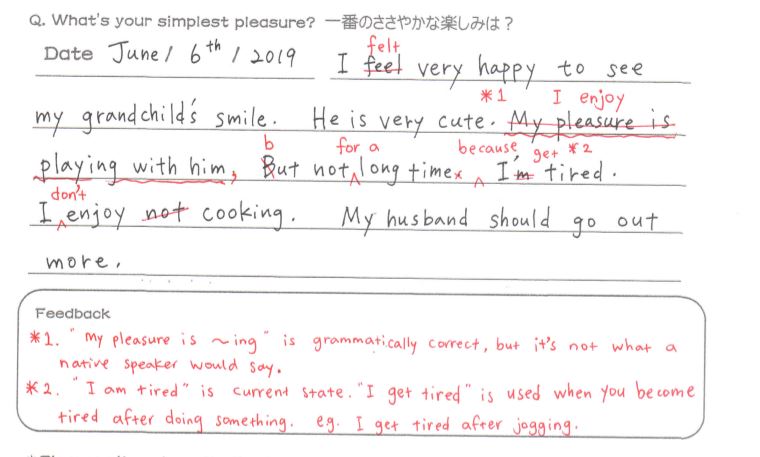 Q. What's your simplest pleasure? 一番のささやかな楽しみは？
felt
Date June / 6th / 2019 I feel very happy to see
*1 I enjoy
my grandchild's smile. He is very cute. My pleasure is
b for a because get *2
playing with him, But not long time. I'm tired.
don't
I enjoy not cooking. My husband should go out
more.
Feedback
*1. "My pleasure is ~ing" is grammatically correct, but it's not what a
native speaker would say.
*2. "I am tired" is current state. "I get tired" is used when you become
tired after doing something. eg. I get tired after jogging.